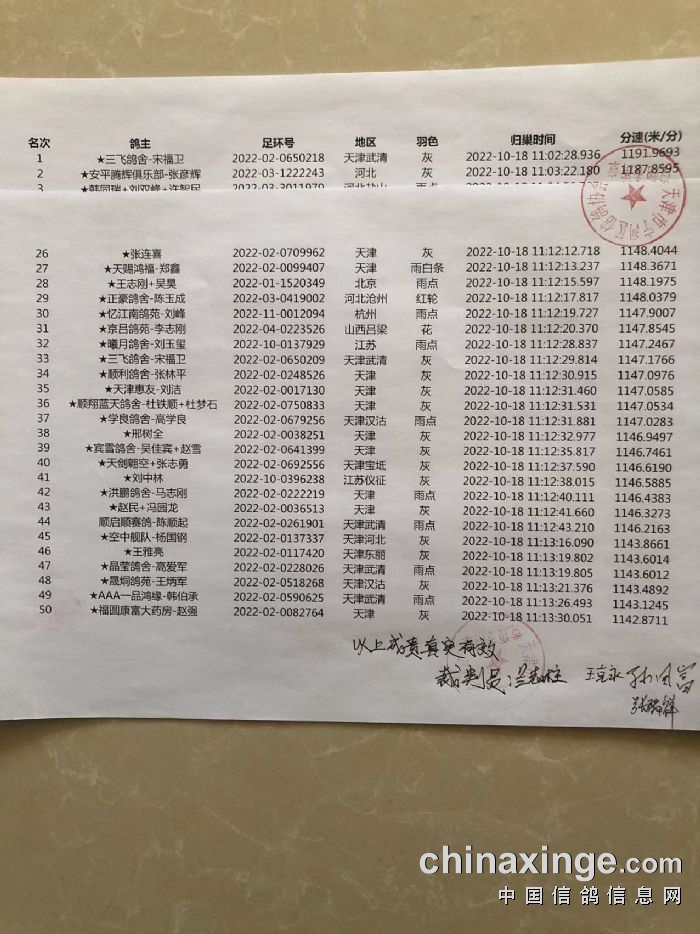 名次 鸽主 足环号 地区 羽色 归巢时间 分速(米/分)
1 ★三飞鸽舍-宋福卫 2022-02-0650218 天津武清 灰 2022-10-18 11:02:28.936 1191.9693
2 ★安平腾辉俱乐部-张彦辉 2022-03-1222243 河北 灰 2022-10-18 11:03:22.180 1187.8595
3 ★韩同瑞+刘双峰+许智民 2022-03-3011979
26 ★张连喜 2022-02-0709962 天津 灰 2022-10-18 11:12:12.718 1148.4044
27 ★天赐鸿福-郑鑫 2022-02-0099407 天津 雨白条 2022-10-18 11:12:13.237 1148.3671
28 ★王志刚+吴昊 2022-01-1520349 北京 雨点 2022-10-18 11:12:15.597 1148.1975
29 ★正豪鸽舍-陈玉成 2022-03-0419002 河北沧州 红轮 2022-10-18 11:12:17.817 1148.0379
30 ★忆江南鸽苑-刘峰 2022-11-0012094 杭州 雨点 2022-10-18 11:12:19.727 1147.9007
31 ★京吕鸽苑-李志刚 2022-04-0223526 山西吕梁 花 2022-10-18 11:12:20.370 1147.8545
32 ★曦月鸽舍-刘玉玺 2022-10-0137929 江苏 雨点 2022-10-18 11:12:28.837 1147.2467
33 ★三飞鸽舍-宋福卫 2022-02-0650209 天津武清 灰 2022-10-18 11:12:29.814 1147.1766
34 ★顺利鸽舍-张林平 2022-02-0248526 天津 灰 2022-10-18 11:12:30.915 1147.0976
35 ★天津惠友-刘洁 2022-02-0017130 天津 灰 2022-10-18 11:12:31.460 1147.0585
36 ★顺翔蓝天鸽舍-杜铁顺+杜梦石 2022-02-0750833 天津 灰 2022-10-18 11:12:31.531 1147.0534
37 ★学良鸽舍-高学良 2022-02-0679256 天津汉沽 雨点 2022-10-18 11:12:31.881 1147.0283
38 ★邢树全 2022-02-0038251 天津 灰 2022-10-18 11:12:32.977 1146.9497
39 ★宾雪鸽舍-吴佳宾+赵雪 2022-02-0641399 天津 灰 2022-10-18 11:12:35.817 1146.7461
40 ★天剑翱空+张志勇 2022-02-0692556 天津宝坻 灰 2022-10-18 11:12:37.590 1146.6190
41 ★刘中林 2022-10-0396238 江苏仪征 灰 2022-10-18 11:12:38.015 1146.5885
42 ★洪鹏鸽舍-马志刚 2022-02-0222219 天津 雨点 2022-10-18 11:12:40.111 1146.4383
43 ★赵民+冯园龙 2022-02-0036513 天津 灰 2022-10-18 11:12:41.660 1146.3273
44 顺启顺赛鸽-陈顺起 2022-02-0261901 天津武清 雨点 2022-10-18 11:12:43.210 1146.2163
45 ★空中舰队-杨国钢 2022-02-0137337 天津河北 灰 2022-10-18 11:13:16.090 1143.8661
46 ★王雅亮 2022-02-0117420 天津东丽 灰 2022-10-18 11:13:19.802 1143.6014
47 ★晶莹鸽舍-高爱军 2022-02-0228026 天津武清 雨点 2022-10-18 11:13:19.805 1143.6012
48 ★晟炯鸽苑-王炳军 2022-02-0518268 天津汉沽 灰 2022-10-18 11:13:21.376 1143.4892
49 ★AAA一品鸿缘-韩伯承 2022-02-0590625 天津武清 雨点 2022-10-18 11:13:26.493 1143.1245
50 ★福圆康富大药房-赵强 2022-02-0082764 天津 灰 2022-10-18 11:13:30.051 1142.8711
以上成绩真实有效
裁判员:
chinaxinge.com
中国信鸽信息网